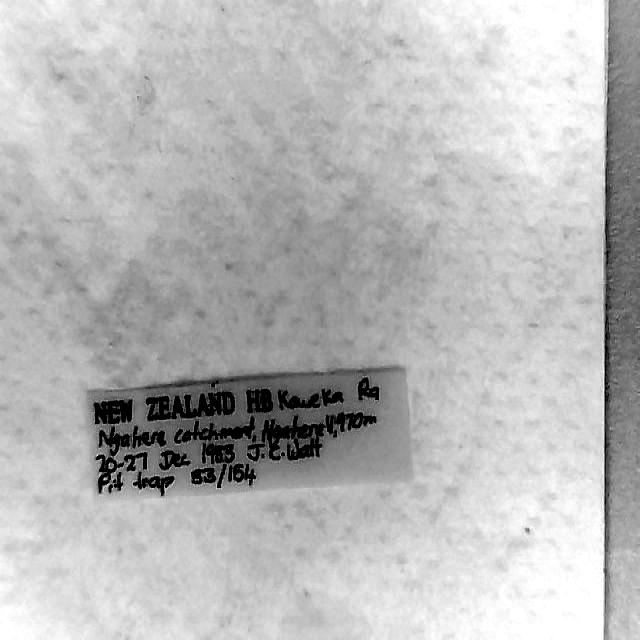 NEW ZEALAND HB Kaweka Ra
Ngahere catchment, Ngahere V, 970m
20-27 Dec 1983 J.C. Watt
Pit trap 83/164